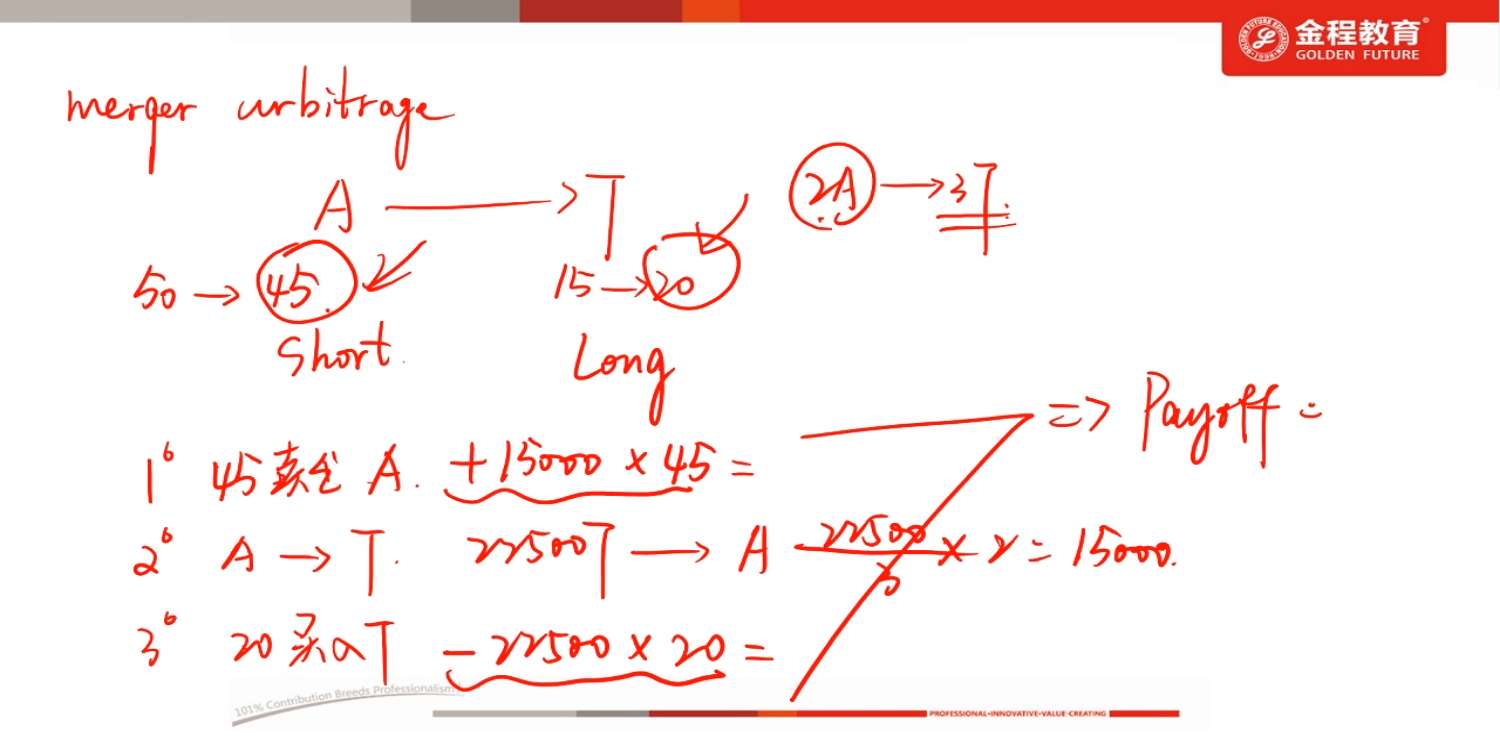 金程教育®
GOLDEN FUTURE
merger arbitrage
A → T 2A → 3T.
50 → 45. 15 → 20
Short. Long
=> Payoff =
1° 45卖空 A. +15000 × 45 =
2° A → T. 22500T → A 22500/3 × 2 = 15000.
3° 20买入T −22500 × 20 =
101% Contribution Breeds Professionalism
PROFESSIONAL•INNOVATIVE•VALUE-CREATING